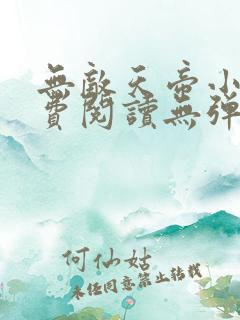 無敵天帝小
費閱讀無彈
何仙姑
未经同意禁止转载